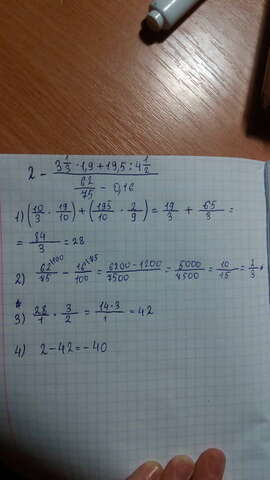 2 - (3 1/3 · 1,9 + 19,5 : 4 1/2) / (62/75 - 0,16)
1) (10/3 · 19/10) + (195/10 · 2/9) = 19/3 + 65/3 =
= 84/3 = 28
2) 62/75 - 16/100 = (6200 - 1200)/7500 = 5000/7500 = 10/15 = 2/3
3) 28/1 · 3/2 = (14·3)/1 = 42
4) 2 - 42 = - 40